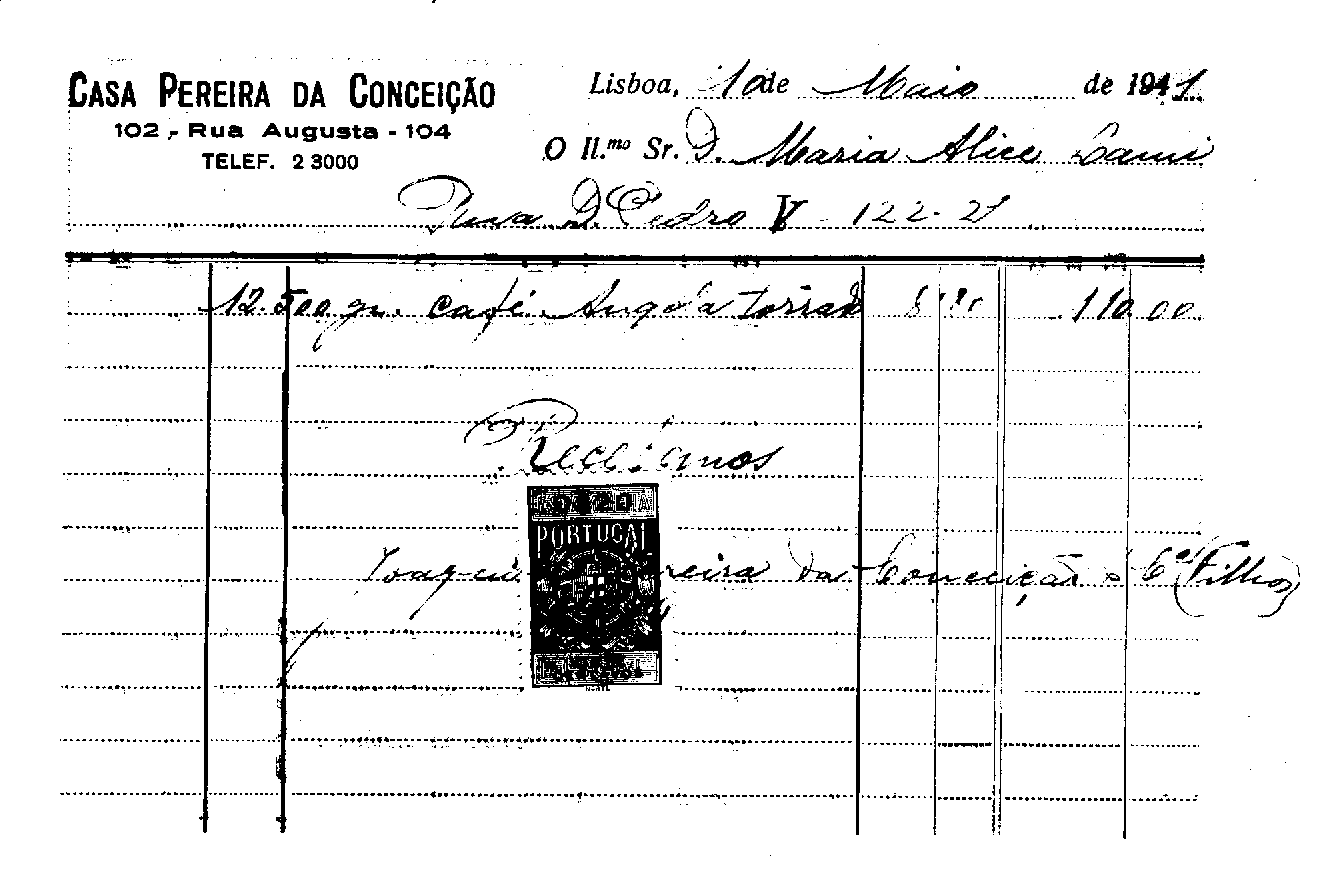 CASA PEREIRA DA CONCEIÇÃO
102, - Rua Augusta - 104
TELEF. 2 3000
Lisboa, 10 de Maio de 1941
O Il.mo Sr. D. Maria Alice
Rua D. Pedro V - 122-2º
12.500 gr. café Angola torrado 8 80 110.00
Recebemos
PORTUGAL
Joaquim Pereira da Conceição & Cª (Filhos)